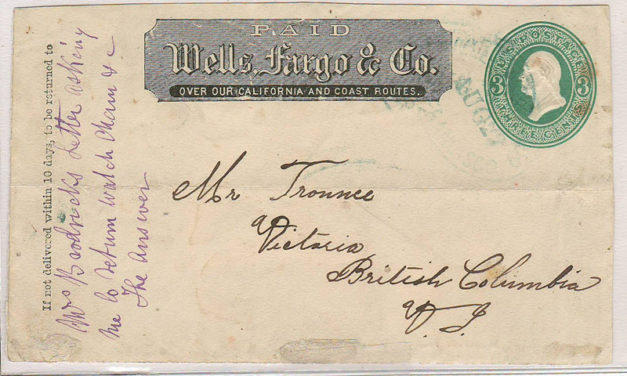 PAID
Wells, Fargo & Co.
OVER OUR CALIFORNIA AND COAST ROUTES.
3 3
THREE CENTS
AUG
If not delivered within 10 days, to be returned to
Mrs Brodricks Letter asking
me to return watch Cham & c
The Answer
Mr Trounce
Victoria
British Columbia
V. I.